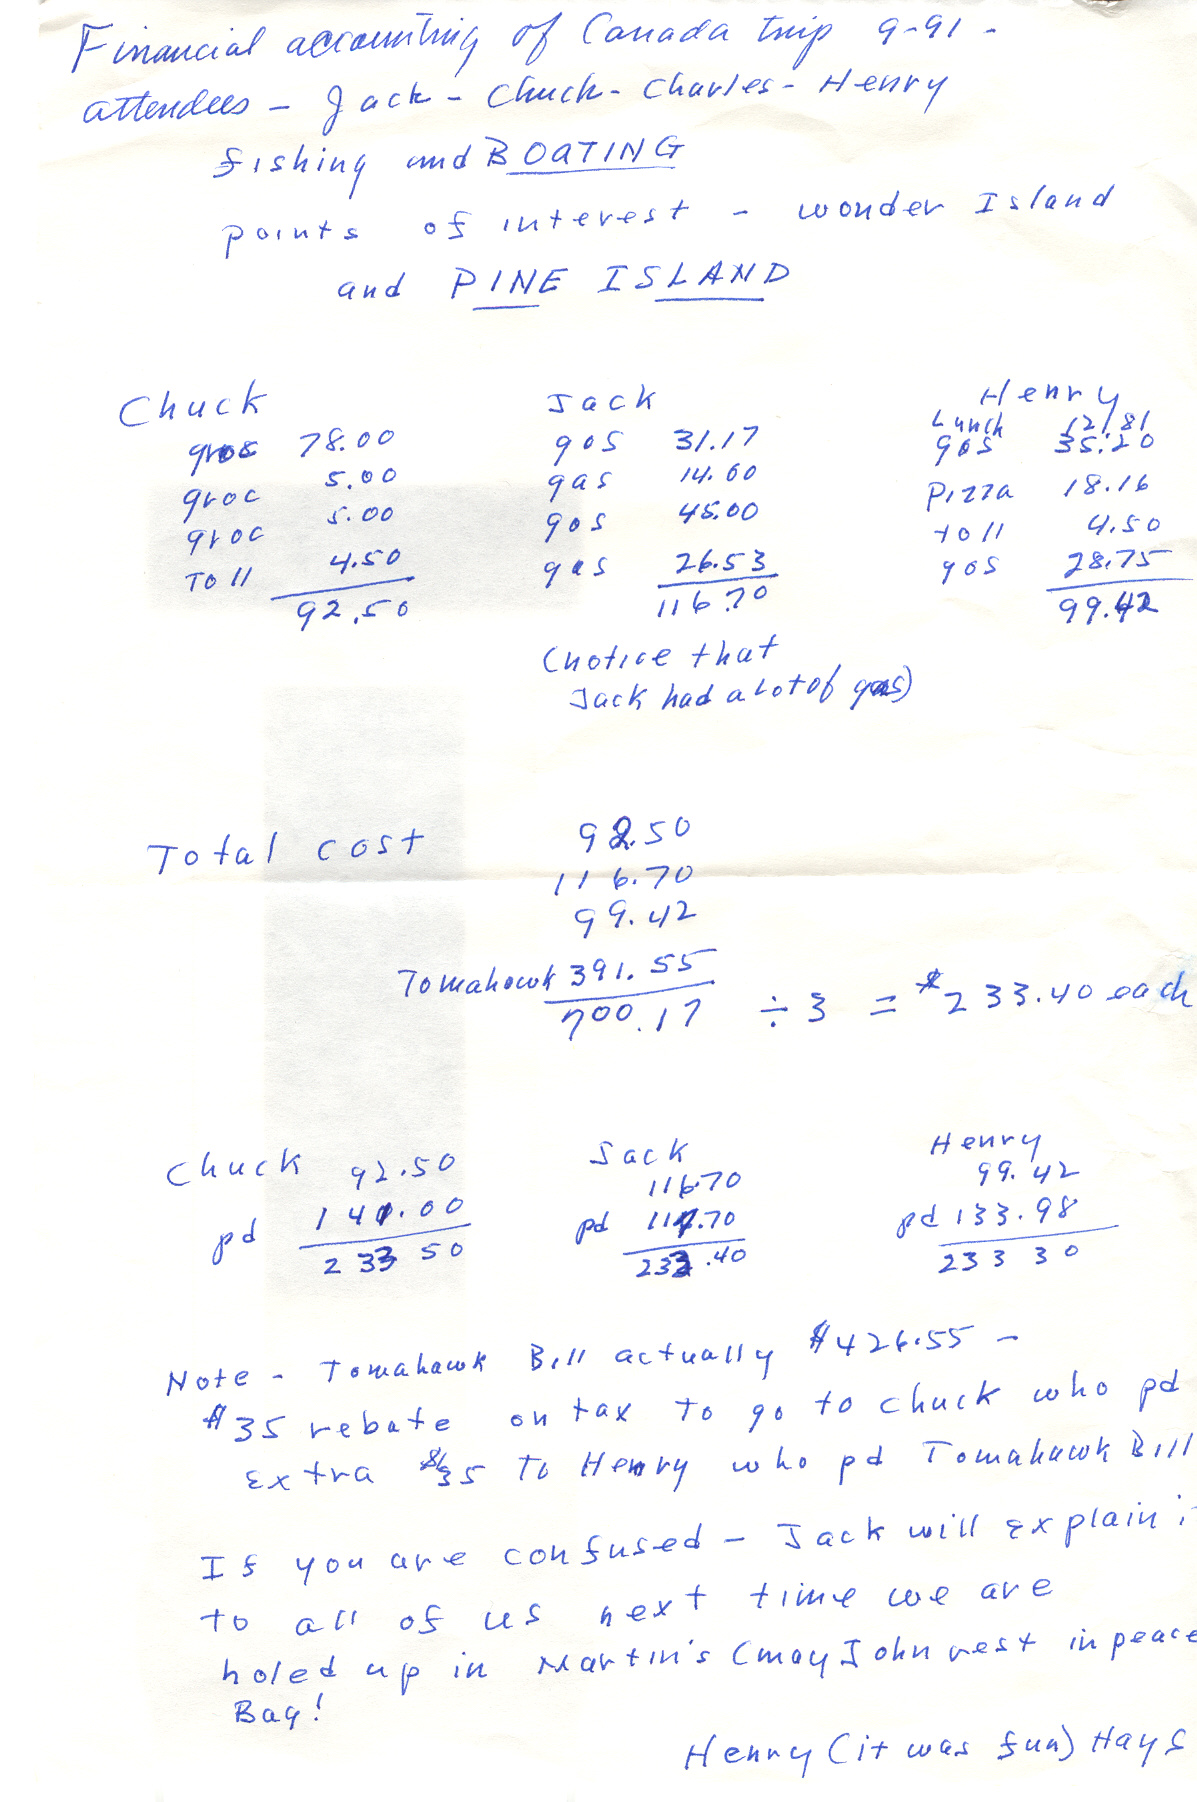 Financial accounting of Canada trip 9-91 -
attendees - Jack - Chuck - Charles - Henry
fishing and BOATING
points of interest - wonder Island
and PINE ISLAND
Chuck Jack Henry
Lunch 12.81
groc 78.00 gas 31.17 gas 35.20
groc 5.00 gas 14.00 Pizza 18.16
groc 5.00 gas 45.00 toll 4.50
Toll 4.50 gas 26.53 gas 28.75
92.50 116.70 99.42
(notice that
Jack had a lot of gas)
Total cost 92.50
116.70
99.42
Tomahawk 391.55
700.17 ÷ 3 = $233.40 each
Chuck 92.50 Jack 116.70 Henry 99.42
pd 141.00 pd 117.70 pd 133.98
233 50 233.40 233 30
Note - Tomahawk Bill actually $426.55 -
$35 rebate on tax to go to Chuck who pd
Extra $35 to Henry who pd Tomahawk Bill
If you are confused - Jack will explain
to all of us next time we are
holed up in Martin's (may John rest in peace
Bay!
Henry (it was fun) Hays